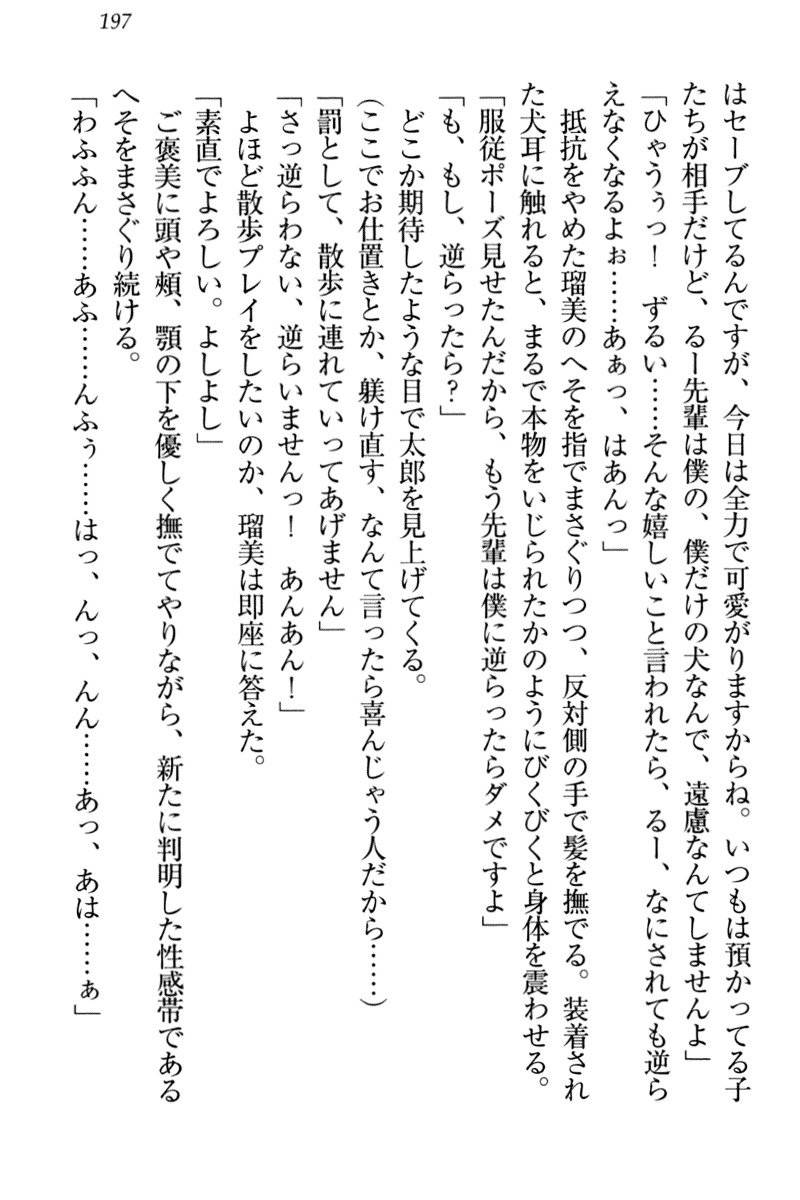 197
はセーブしてるんですが、今日は全力で可愛がりますからね。いつもは預かってる子
たちが相手だけど、るー先輩は僕の、僕だけの犬なんで、遠慮なんてしませんよ」
「ひゃうぅっ！　ずるい……そんな嬉しいこと言われたら、るー、なにされても逆ら
えなくなるよぉ……あぁっ、はあんっ」
　抵抗をやめた瑠美のへそを指でまさぐりつつ、反対側の手で髪を撫でる。装着され
た犬耳に触れると、まるで本物をいじられたかのようにびくびくと身体を震わせる。
「服従ポーズ見せたんだから、もう先輩は僕に逆らったらダメですよ」
「も、もし、逆らったら？」
　どこか期待したような目で太郎を見上げてくる。
（ここでお仕置きとか、躾け直す、なんて言ったら喜んじゃう人だから……）
「罰として、散歩に連れていってあげません」
「さっ逆らわない、逆らいませんっ！　あんあん！」
　よほど散歩プレイをしたいのか、瑠美は即座に答えた。
「素直でよろしい。よしよし」
　ご褒美に頭や頰、顎の下を優しく撫でてやりながら、新たに判明した性感帯である
へそをまさぐり続ける。
「わふふん……あふ……んふぅ……はっ、んっ、んん……あっ、あは……ぁ」